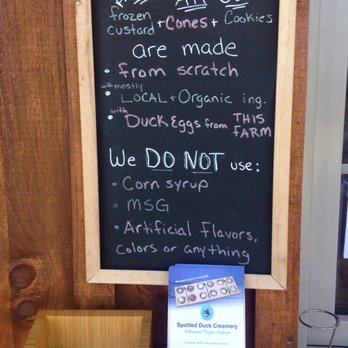 frozen custard + Cones + Cookies
are made
• from scratch
with mostly
• LOCAL + Organic ing.
with
• Duck Eggs from THIS FARM
We DO NOT use:
• Corn syrup
• MSG
• Artificial Flavors,
colors or anything
Spotted Duck Creamery